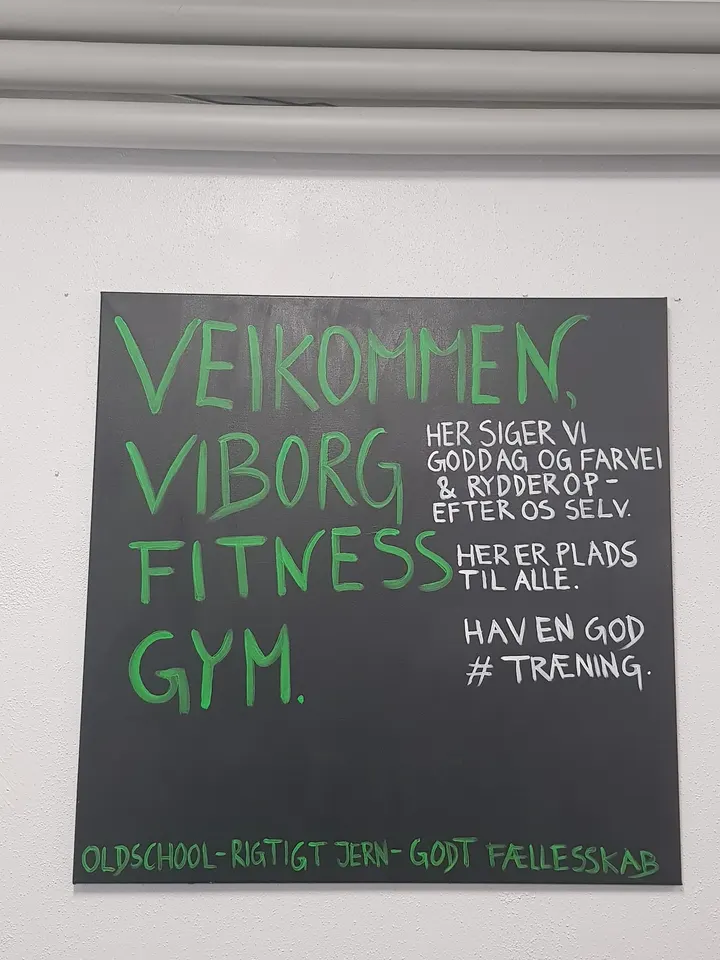 VEIKOMMEN,
VIBORG
FITNESS
GYM.
HER SIGER VI
GODDAG OG FARVEI
& RYDDER OP-
EFTER OS SELV.
HER ER PLADS
TIL ALLE.
HAV EN GOD
# TRÆNING.
OLDSCHOOL-RIGTIGT JERN-GODT FÆLLESSKAB